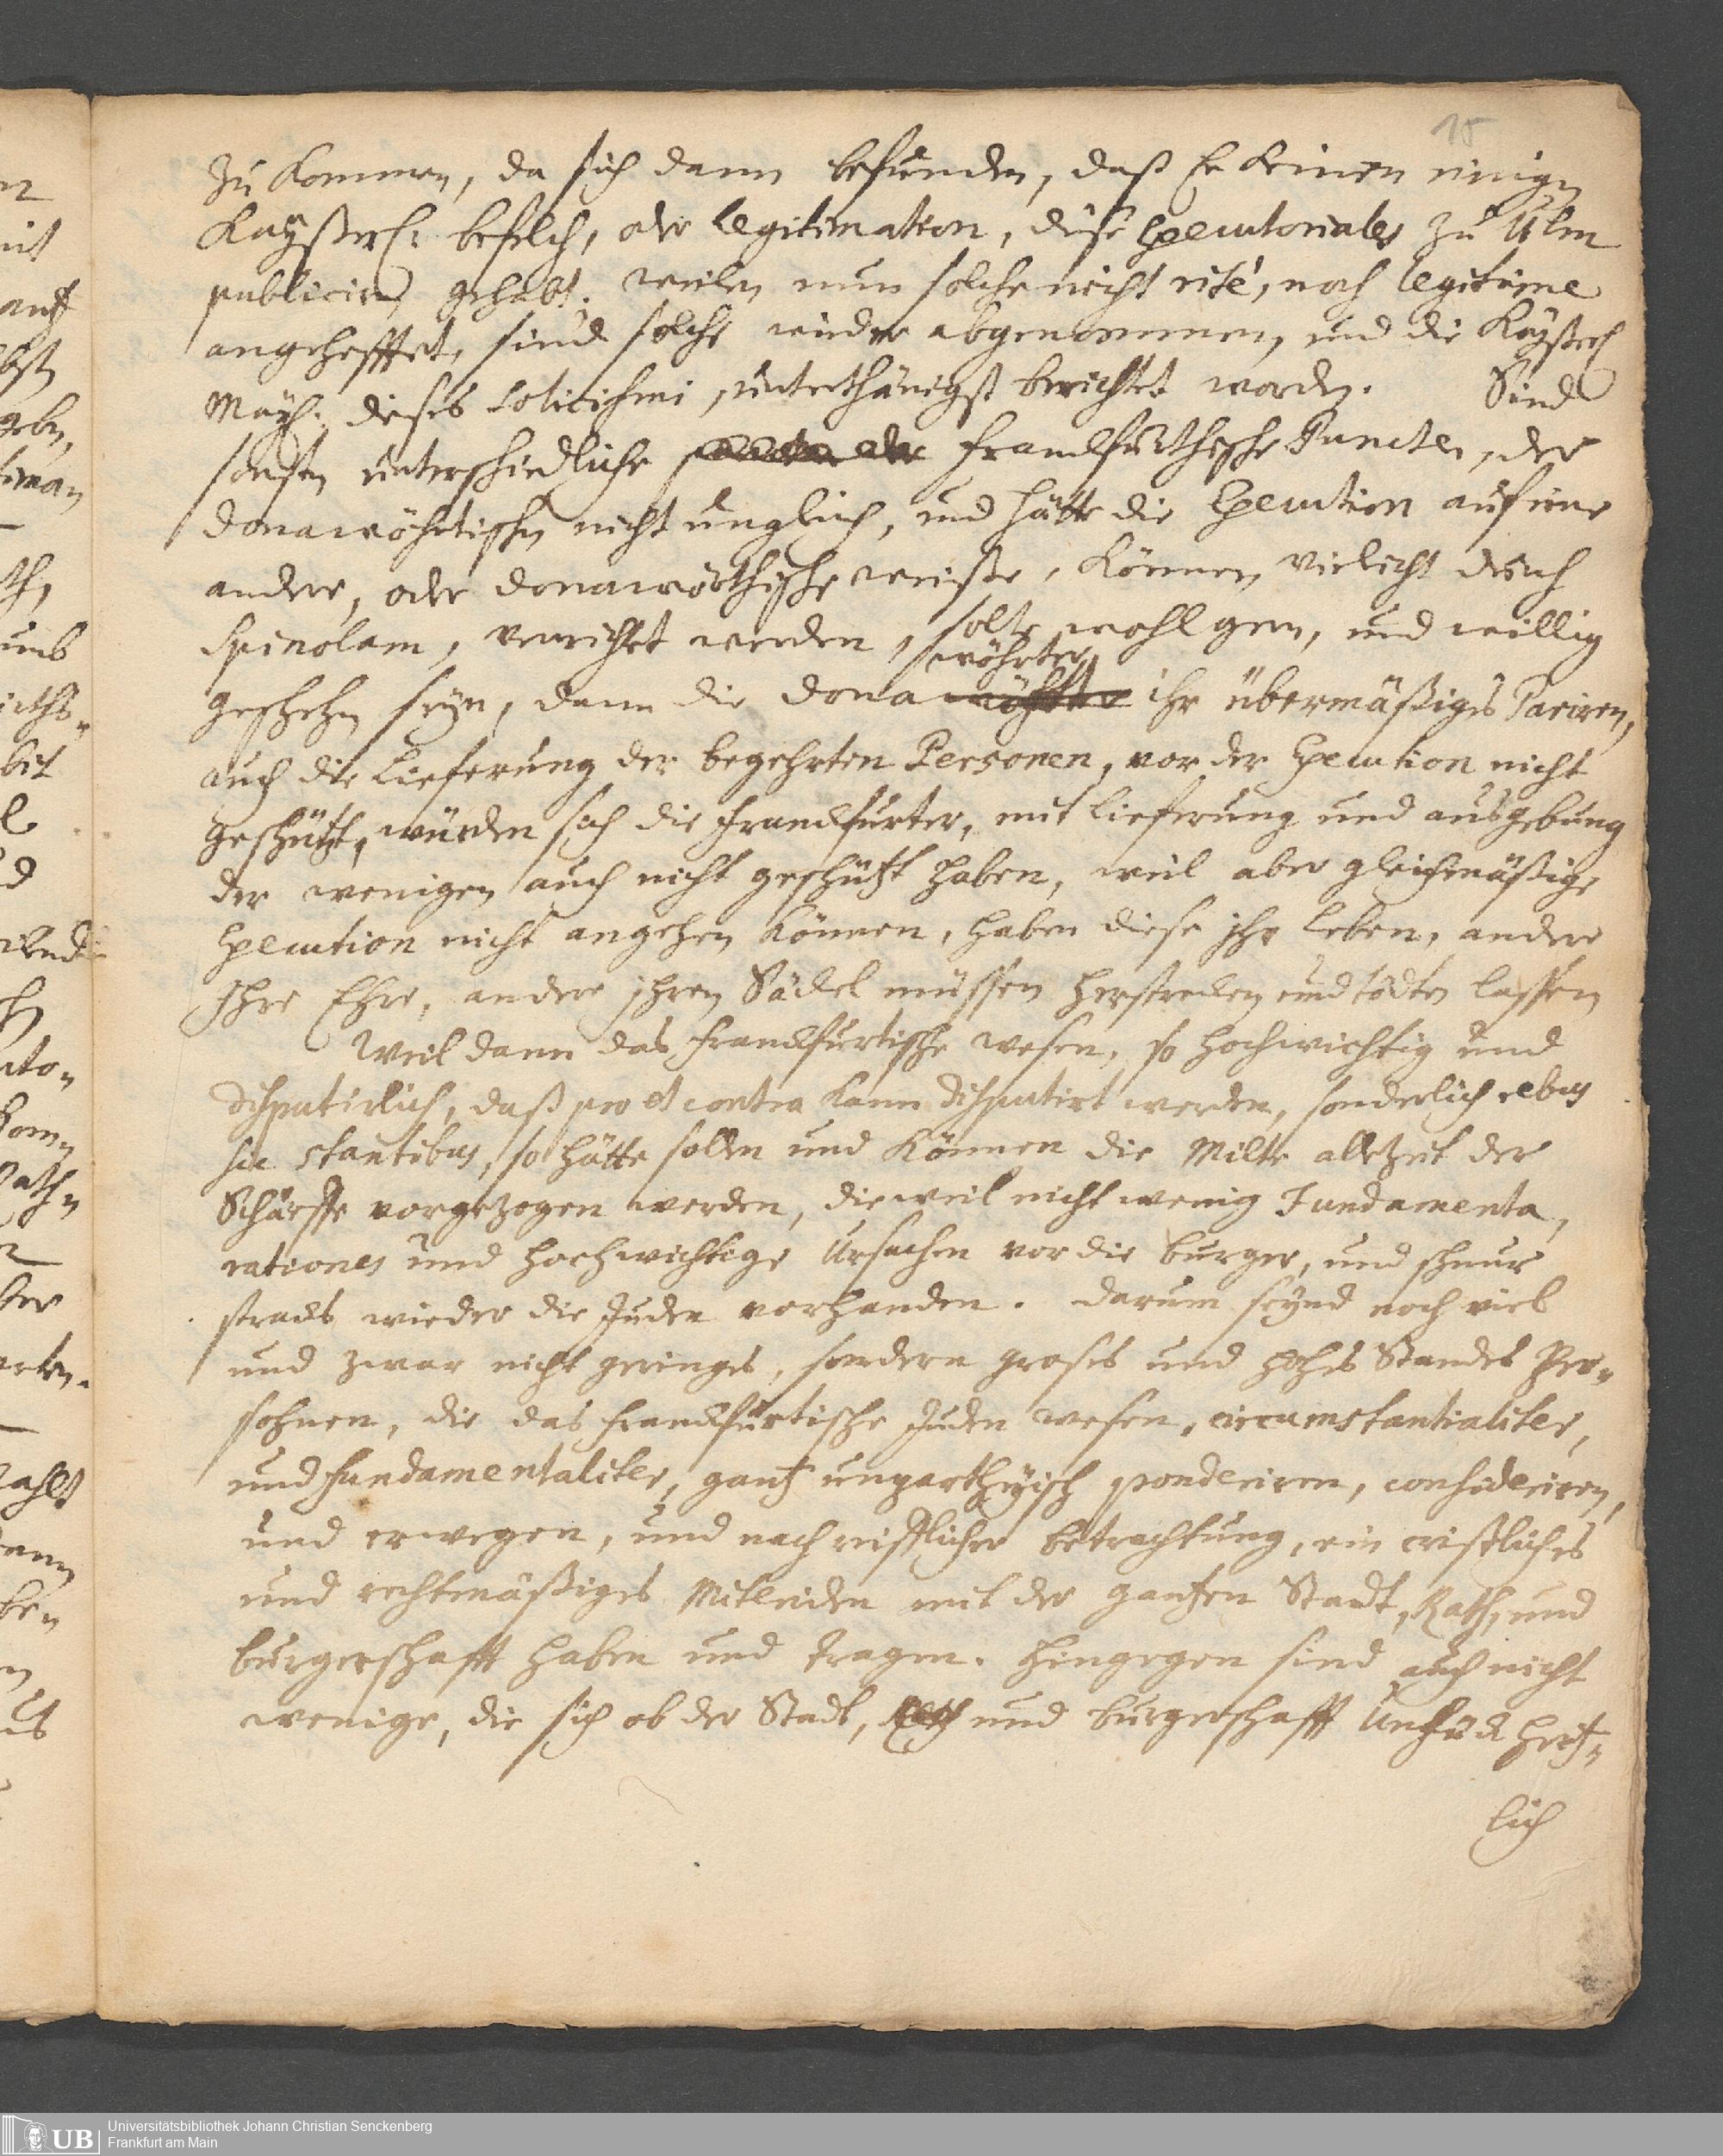 15
zu Kommen, da sich dann befunden, daß Er keinen einigen
Kayßerl: befelch, oder Legitimation, diese Executoriales zu Ulm
publiciren gehabt. weilen nun solche nicht rité, noch legitime
angehefftet, sind solche wieder abgenommen, und die Kayßerl
May: dieses unterthänigst berichtet worden. Sind
sonsten unterschiedliche Franckfurthische Puncten, der
Donawöhrtischen nicht ungleich, und hätte die Execution auf eine
andere, oder Donawörthische weise, Können vieleicht durch
Spinolam, verrichtet werden, solte wohl gern, und willig
wöhrter
geschehen seyn, dann die Dona ihr übermäßiges Pariren,
auch die Lieferung der begehrten Personen, vor der Execution nicht
geschützt, würden sich die Franckfurter, mit lieferung und ausgebung
der wenigen auch nicht geschützt haben, weil aber gleichmäßige
Execution nicht angehen Können, haben diese ihr Leben, andere
Ihre Ehre, andere ihren Säckel müssen herstrecken und tödten lassen
Weil dann das Franckfurtische wesen, so hochwichtig und
disputirlich, daß pro et contra kann disputirt werden, sonderlich rebus
sic stantibus, so hätte sollen und Können die Milte allezeit der
Schärffe vorgezogen werden, dieweil nicht wenig Fundamenta,
rationes und hochwichtige Ursachen vor die burger, und schnur
stracks wieder die Juden vorhanden. darum seynd noch viel
und zwar nicht geringes, sondern groses und hohes Standes Per-
sohnen, die das Franckfurtische Juden wesen, circumstantialiter,
und fundamentaliter, gantz unpartheyisch ponderiren, consideriren,
und erwegen, und nach reifflicher betrachtung, ein cristliches
und rechtmäßiges Mitleiden mit der gantzen Stadt, Rath, und
burgerschafft haben und tragen. hingegen sind auch nicht
wenige, die sich ob der Stadt, Rath und burgerschafft Unglück hertz-
lich
Universitätsbibliothek Johann Christian Senckenberg
UB Frankfurt am Main